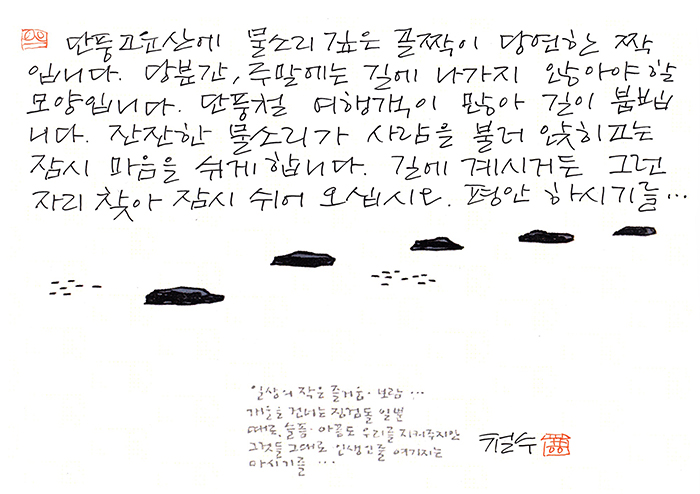 단풍고운산에 물소리 깊은 골짝이 당연한 짝
입니다. 당분간, 주말에는 길에 나가지 않아야 할
모양입니다. 단풍철 여행객이 많아 길이 붐빕
니다. 잔잔한 물소리가 사람을 불러 앉히고는
잠시 마음을 쉬게 합니다. 길에 계시거든 그런
자리 찾아 잠시 쉬어 오십시오. 평안 하시기를…
일상의 작은 즐거움·보람…
개울을 건너는 징검돌 일뿐
때로, 슬픔·아픔도 우리를 지켜주지만
그것들 그대로 인생인줄 여기지는
마시기를 …
철수